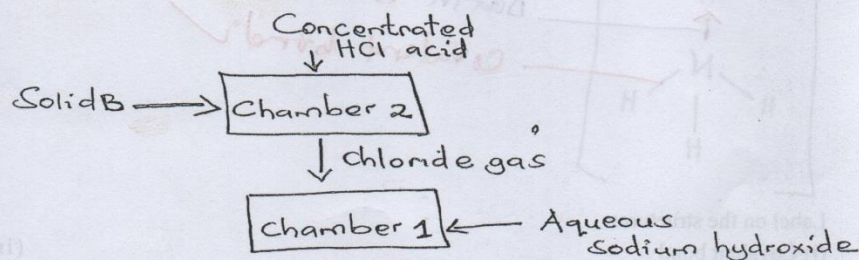 Concentrated
HCl acid
Solid B
Chamber 2
Chloride gas
Chamber 1
Aqueous
sodium hydroxide